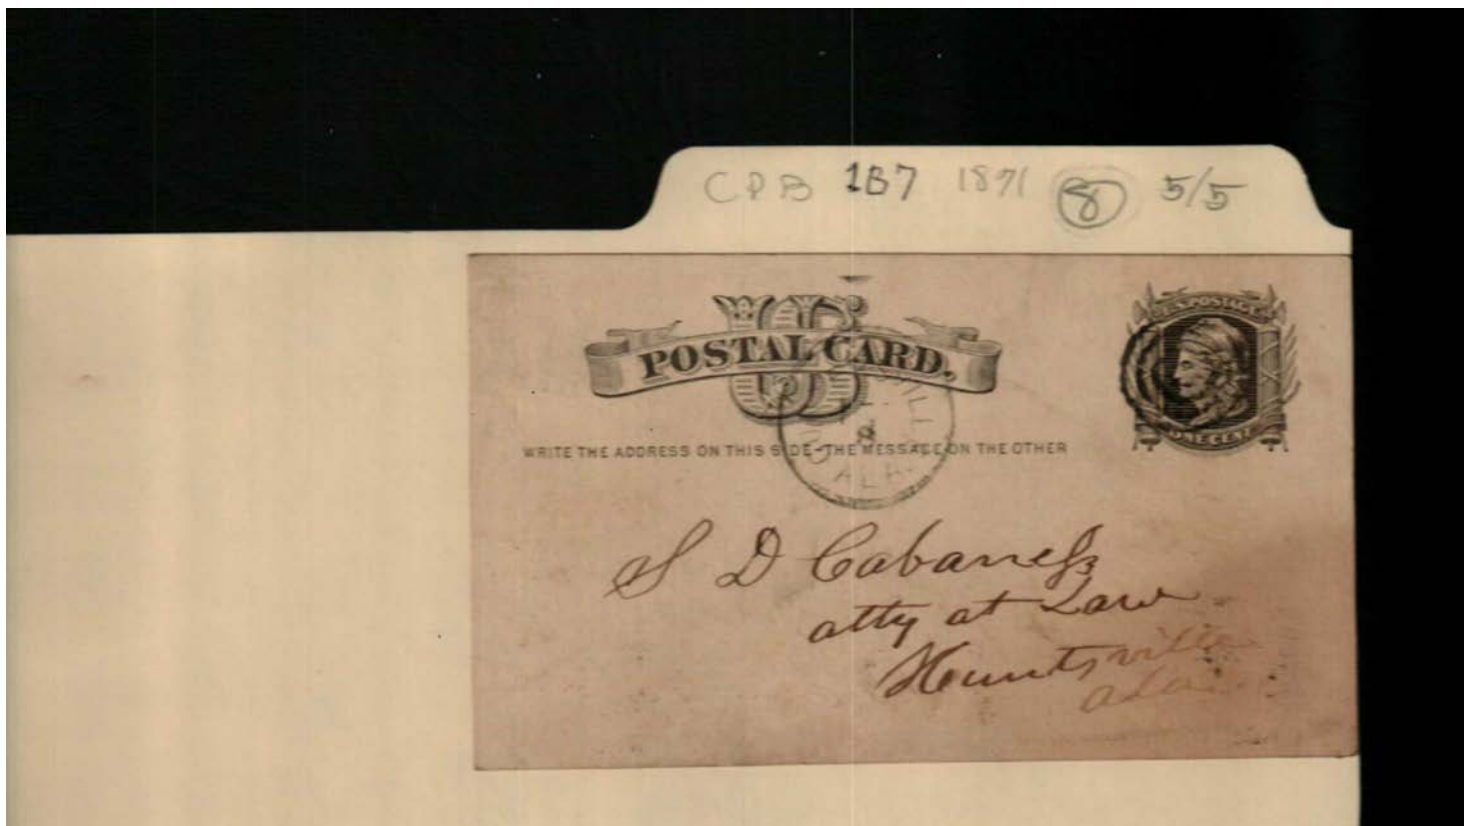 CPB 1B7 1871 8 5/5
US
POSTAL CARD.
U.S. POSTAGE
ONE CENT
WRITE THE ADDRESS ON THIS SIDE-THE MESSAGE ON THE OTHER
ALA.
S D Cabaness
atty at Law
Huntsville
Ala